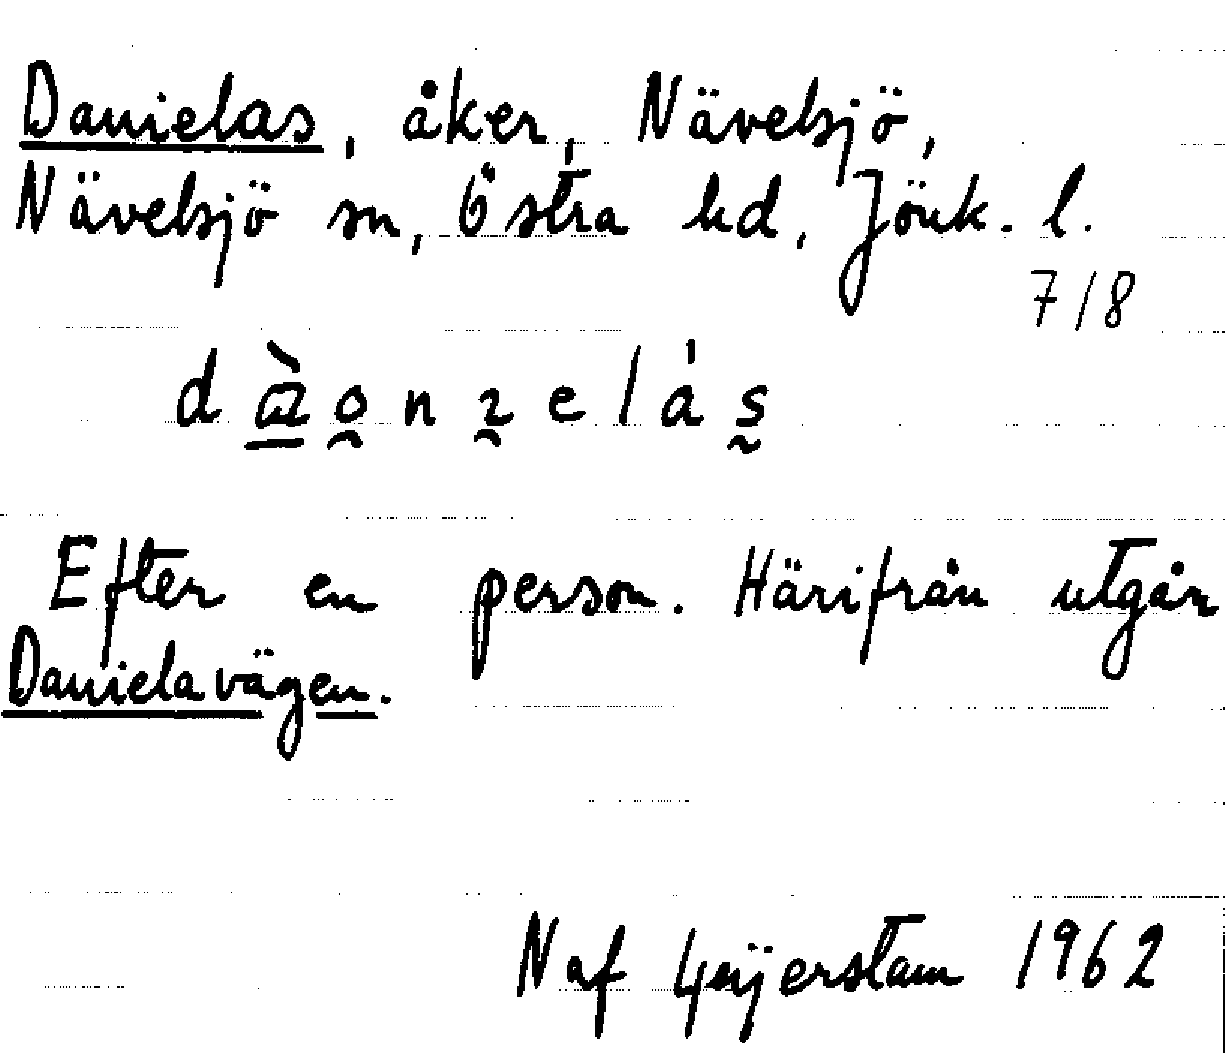 Danielas, åker, Nävelsjö,
Nävelsjö sn, Östra hd, Jönk. l.
7/8
Efter en person. Härifrån utgår
Danielavägen.
N af Geijerstam 1962